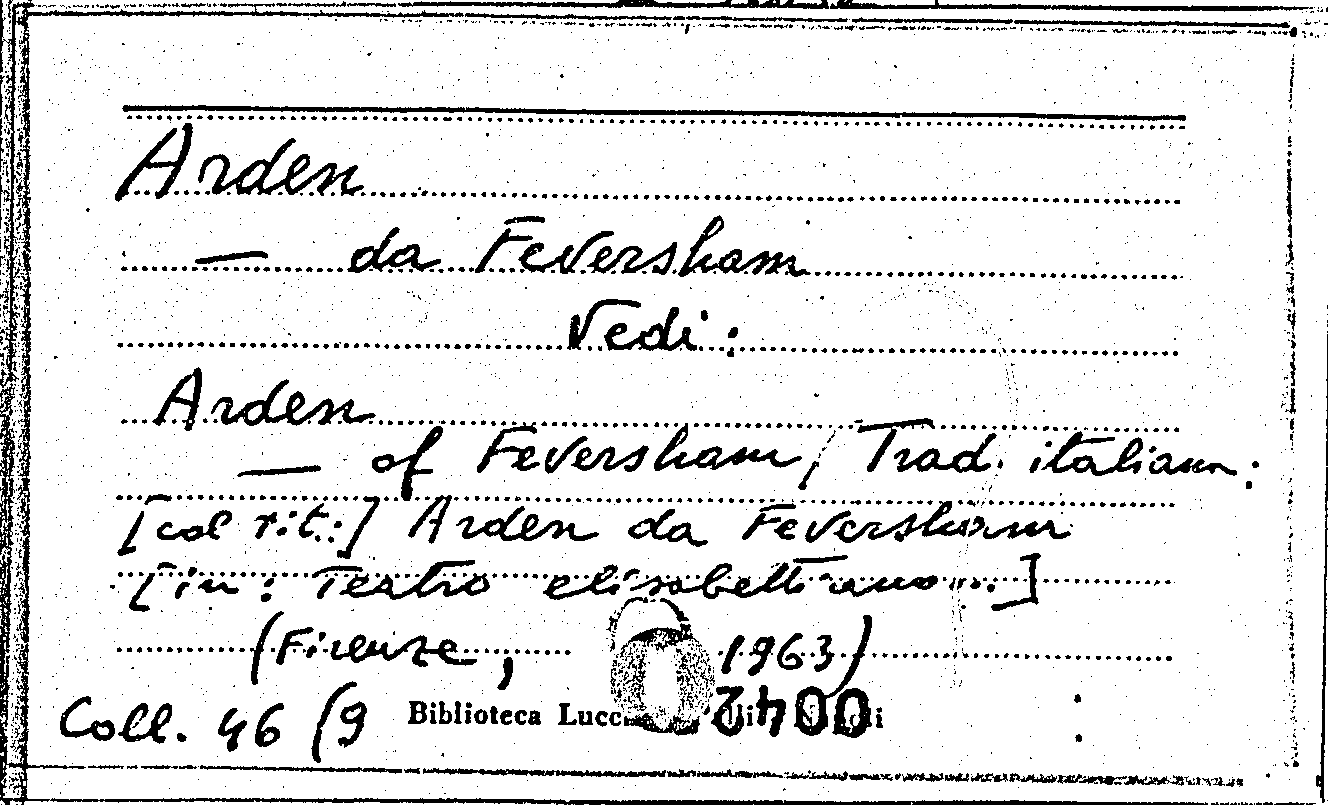 Arden
— da Feversham
Vedi:
Arden
— of Feversham / Trad. italiana:
[col tit.:] Arden da Feversham
[in: Teatro elisabettiano...]
(Firenze, 1963)
Coll. 46 (9 Biblioteca